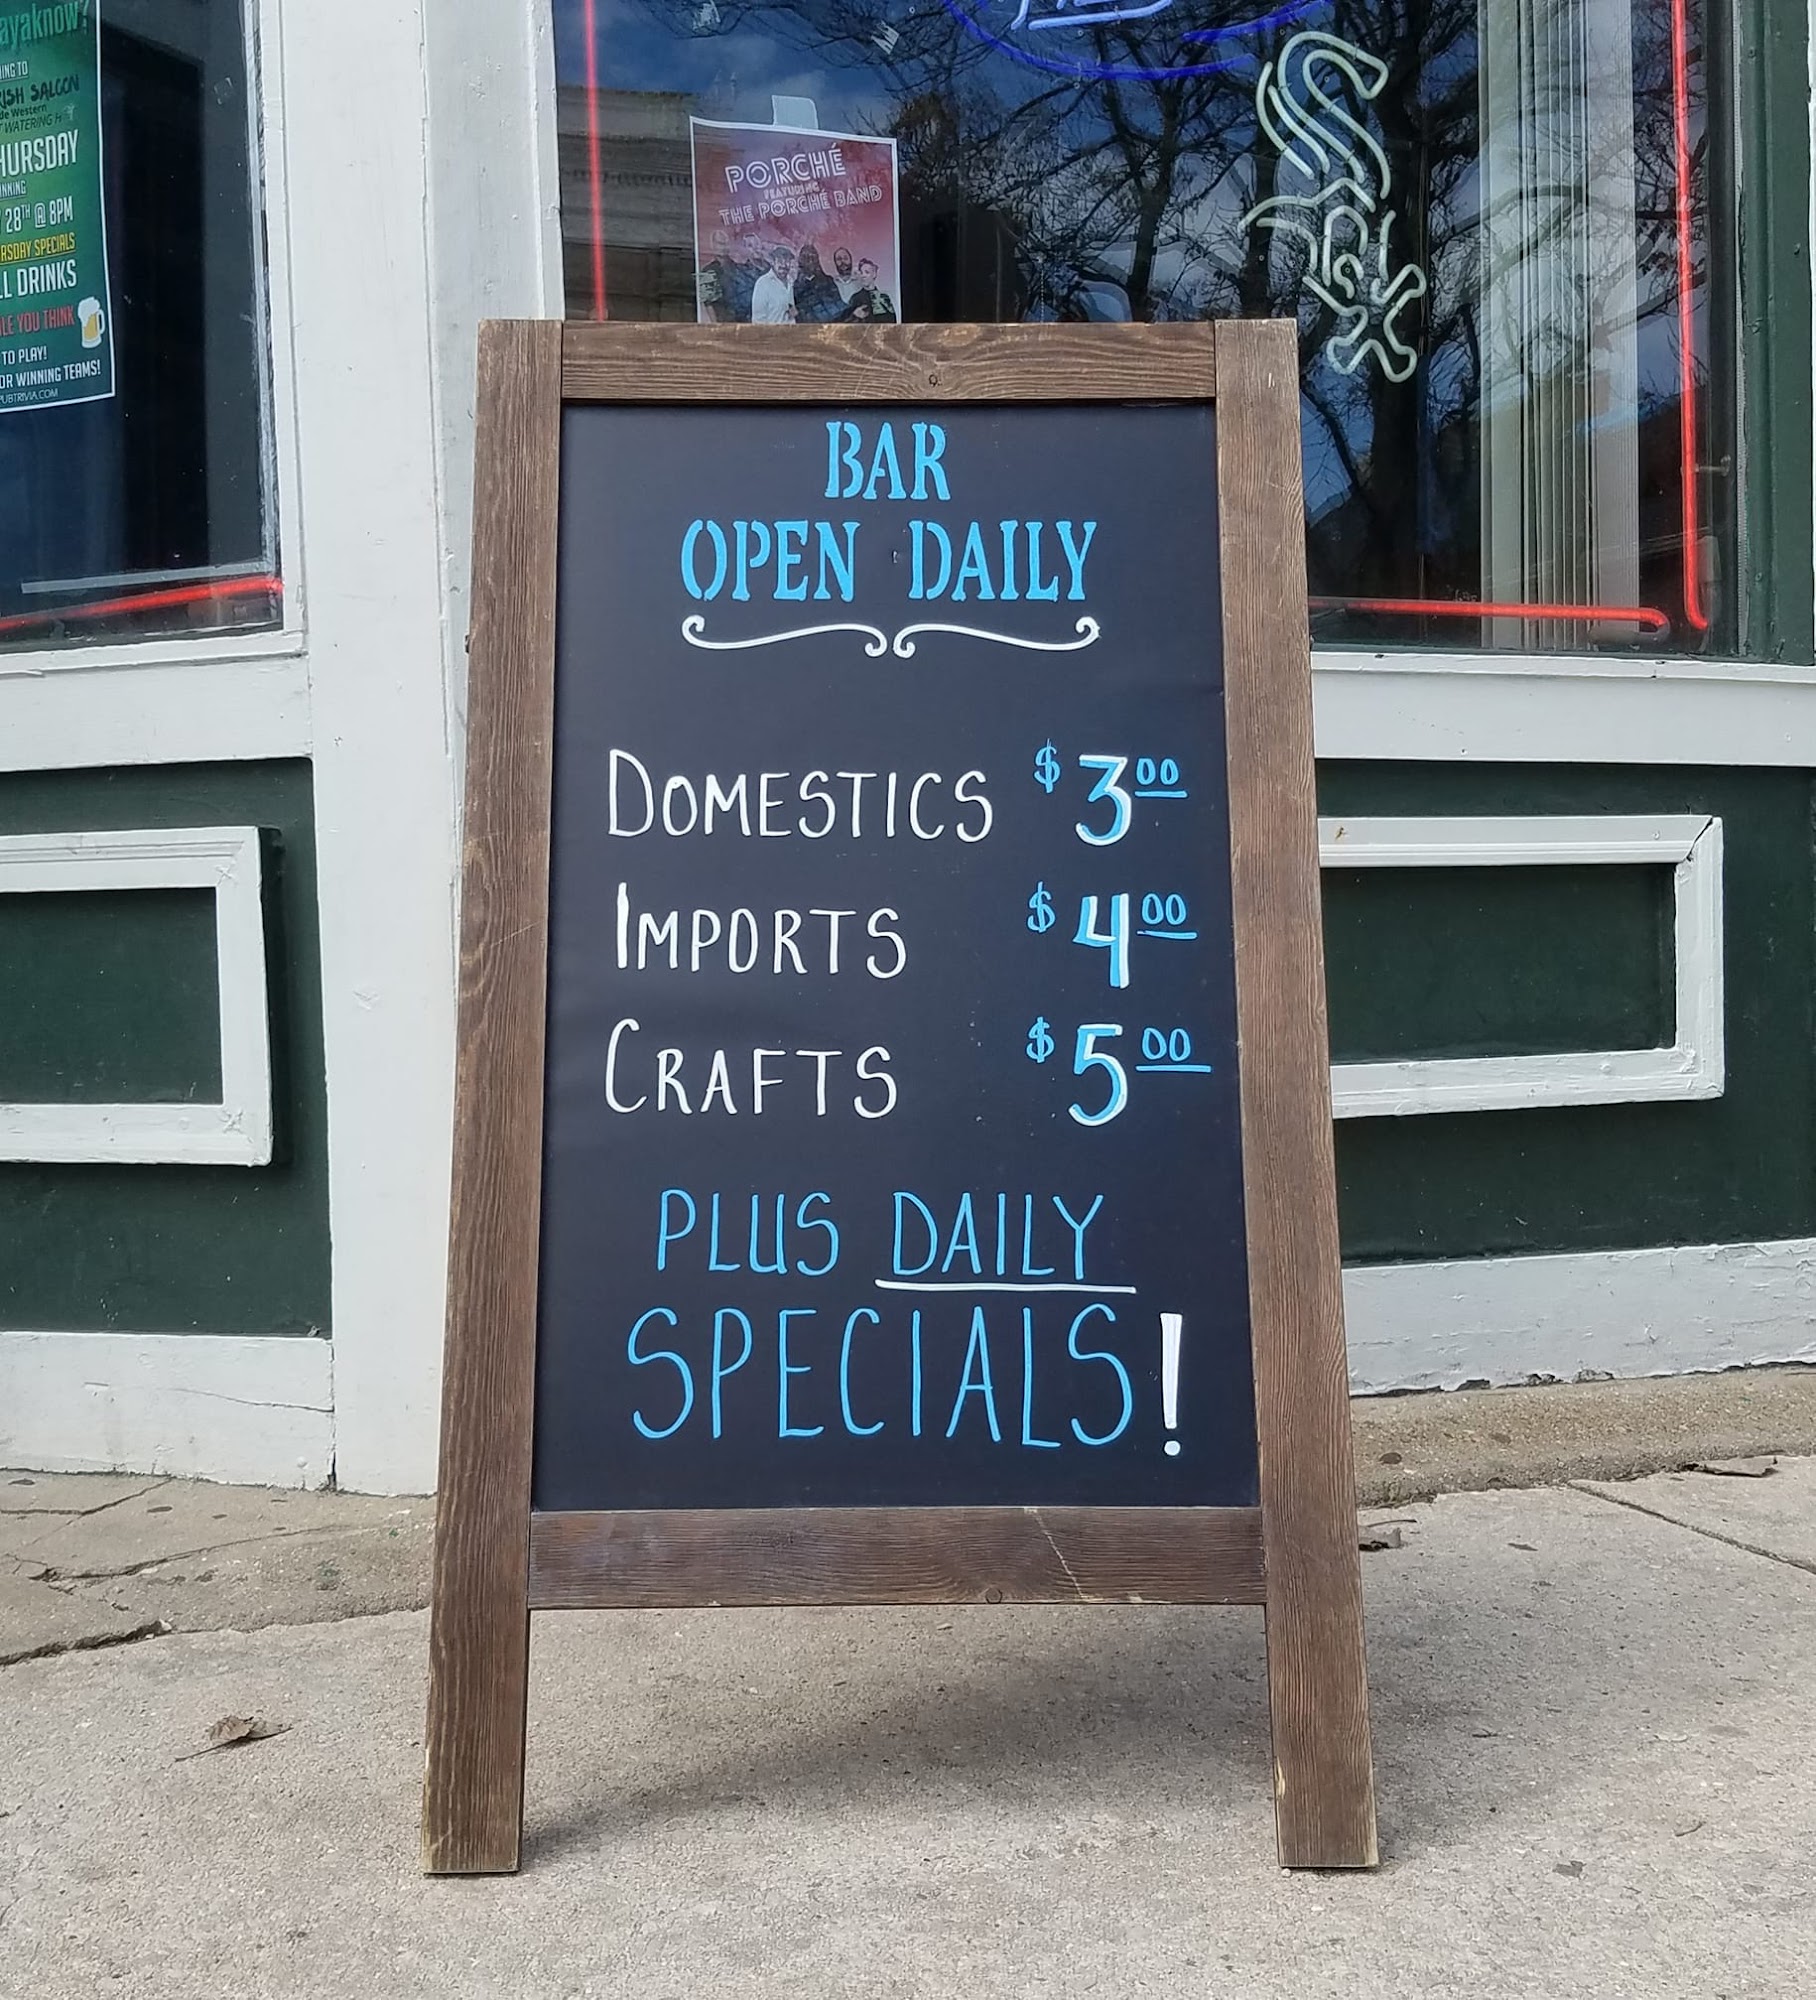 ayaknow?
ING TO
ISH SALOON
de Western
WATERING H
HURSDAY
NNING
28TH @ 8PM
RSDAY SPECIALS
LL DRINKS
LE YOU THINK
TO PLAY!
OR WINNING TEAMS!
PUBTRIVIA.COM
PORCHÉ
FEATURING
THE PORCHÉ BAND
Sox
BAR
OPEN DAILY
DOMESTICS $3.00
IMPORTS $4.00
CRAFTS $5.00
PLUS DAILY
SPECIALS!